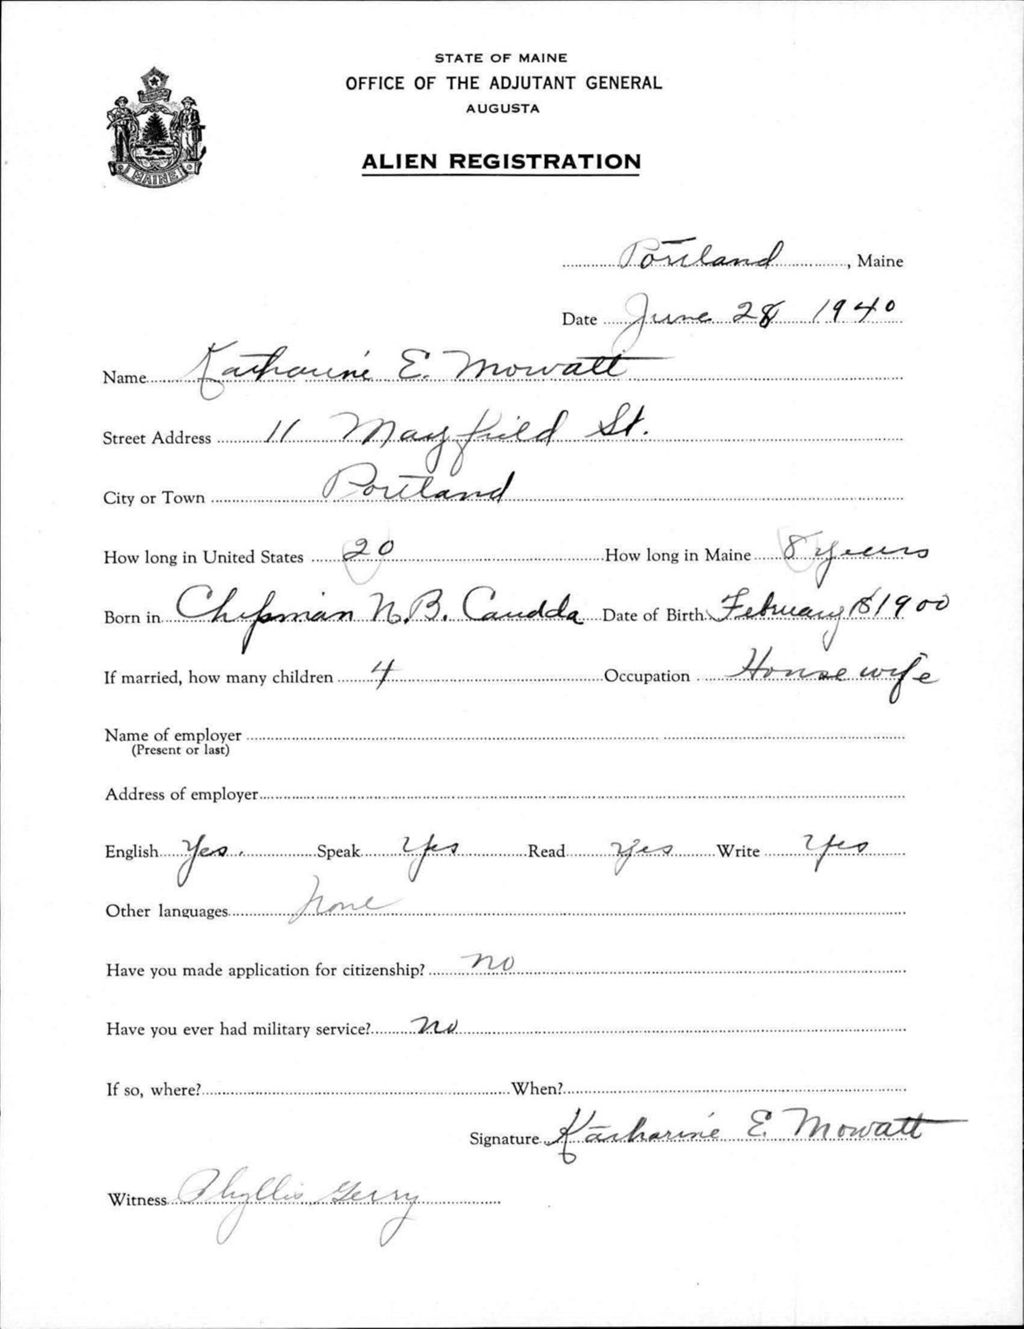 STATE OF MAINE
OFFICE OF THE ADJUTANT GENERAL
AUGUSTA
ALIEN REGISTRATION
MAINE
Portland, Maine
Date June 28 1940
Name Katharine E. Mowatt
Street Address 11 Mayfield St.
City or Town Portland
How long in United States 20 How long in Maine 8 years
Born in Chipman N.B. Canada Date of Birth February 18 1900
If married, how many children 4 Occupation Housewife
Name of employer
(Present or last)
Address of employer
English Yes. Speak Yes Read Yes Write Yes
Other languages None
Have you made application for citizenship? No
Have you ever had military service? No
If so, where? When?
Signature Katharine E. Mowatt
Witness Phyllis Gerry